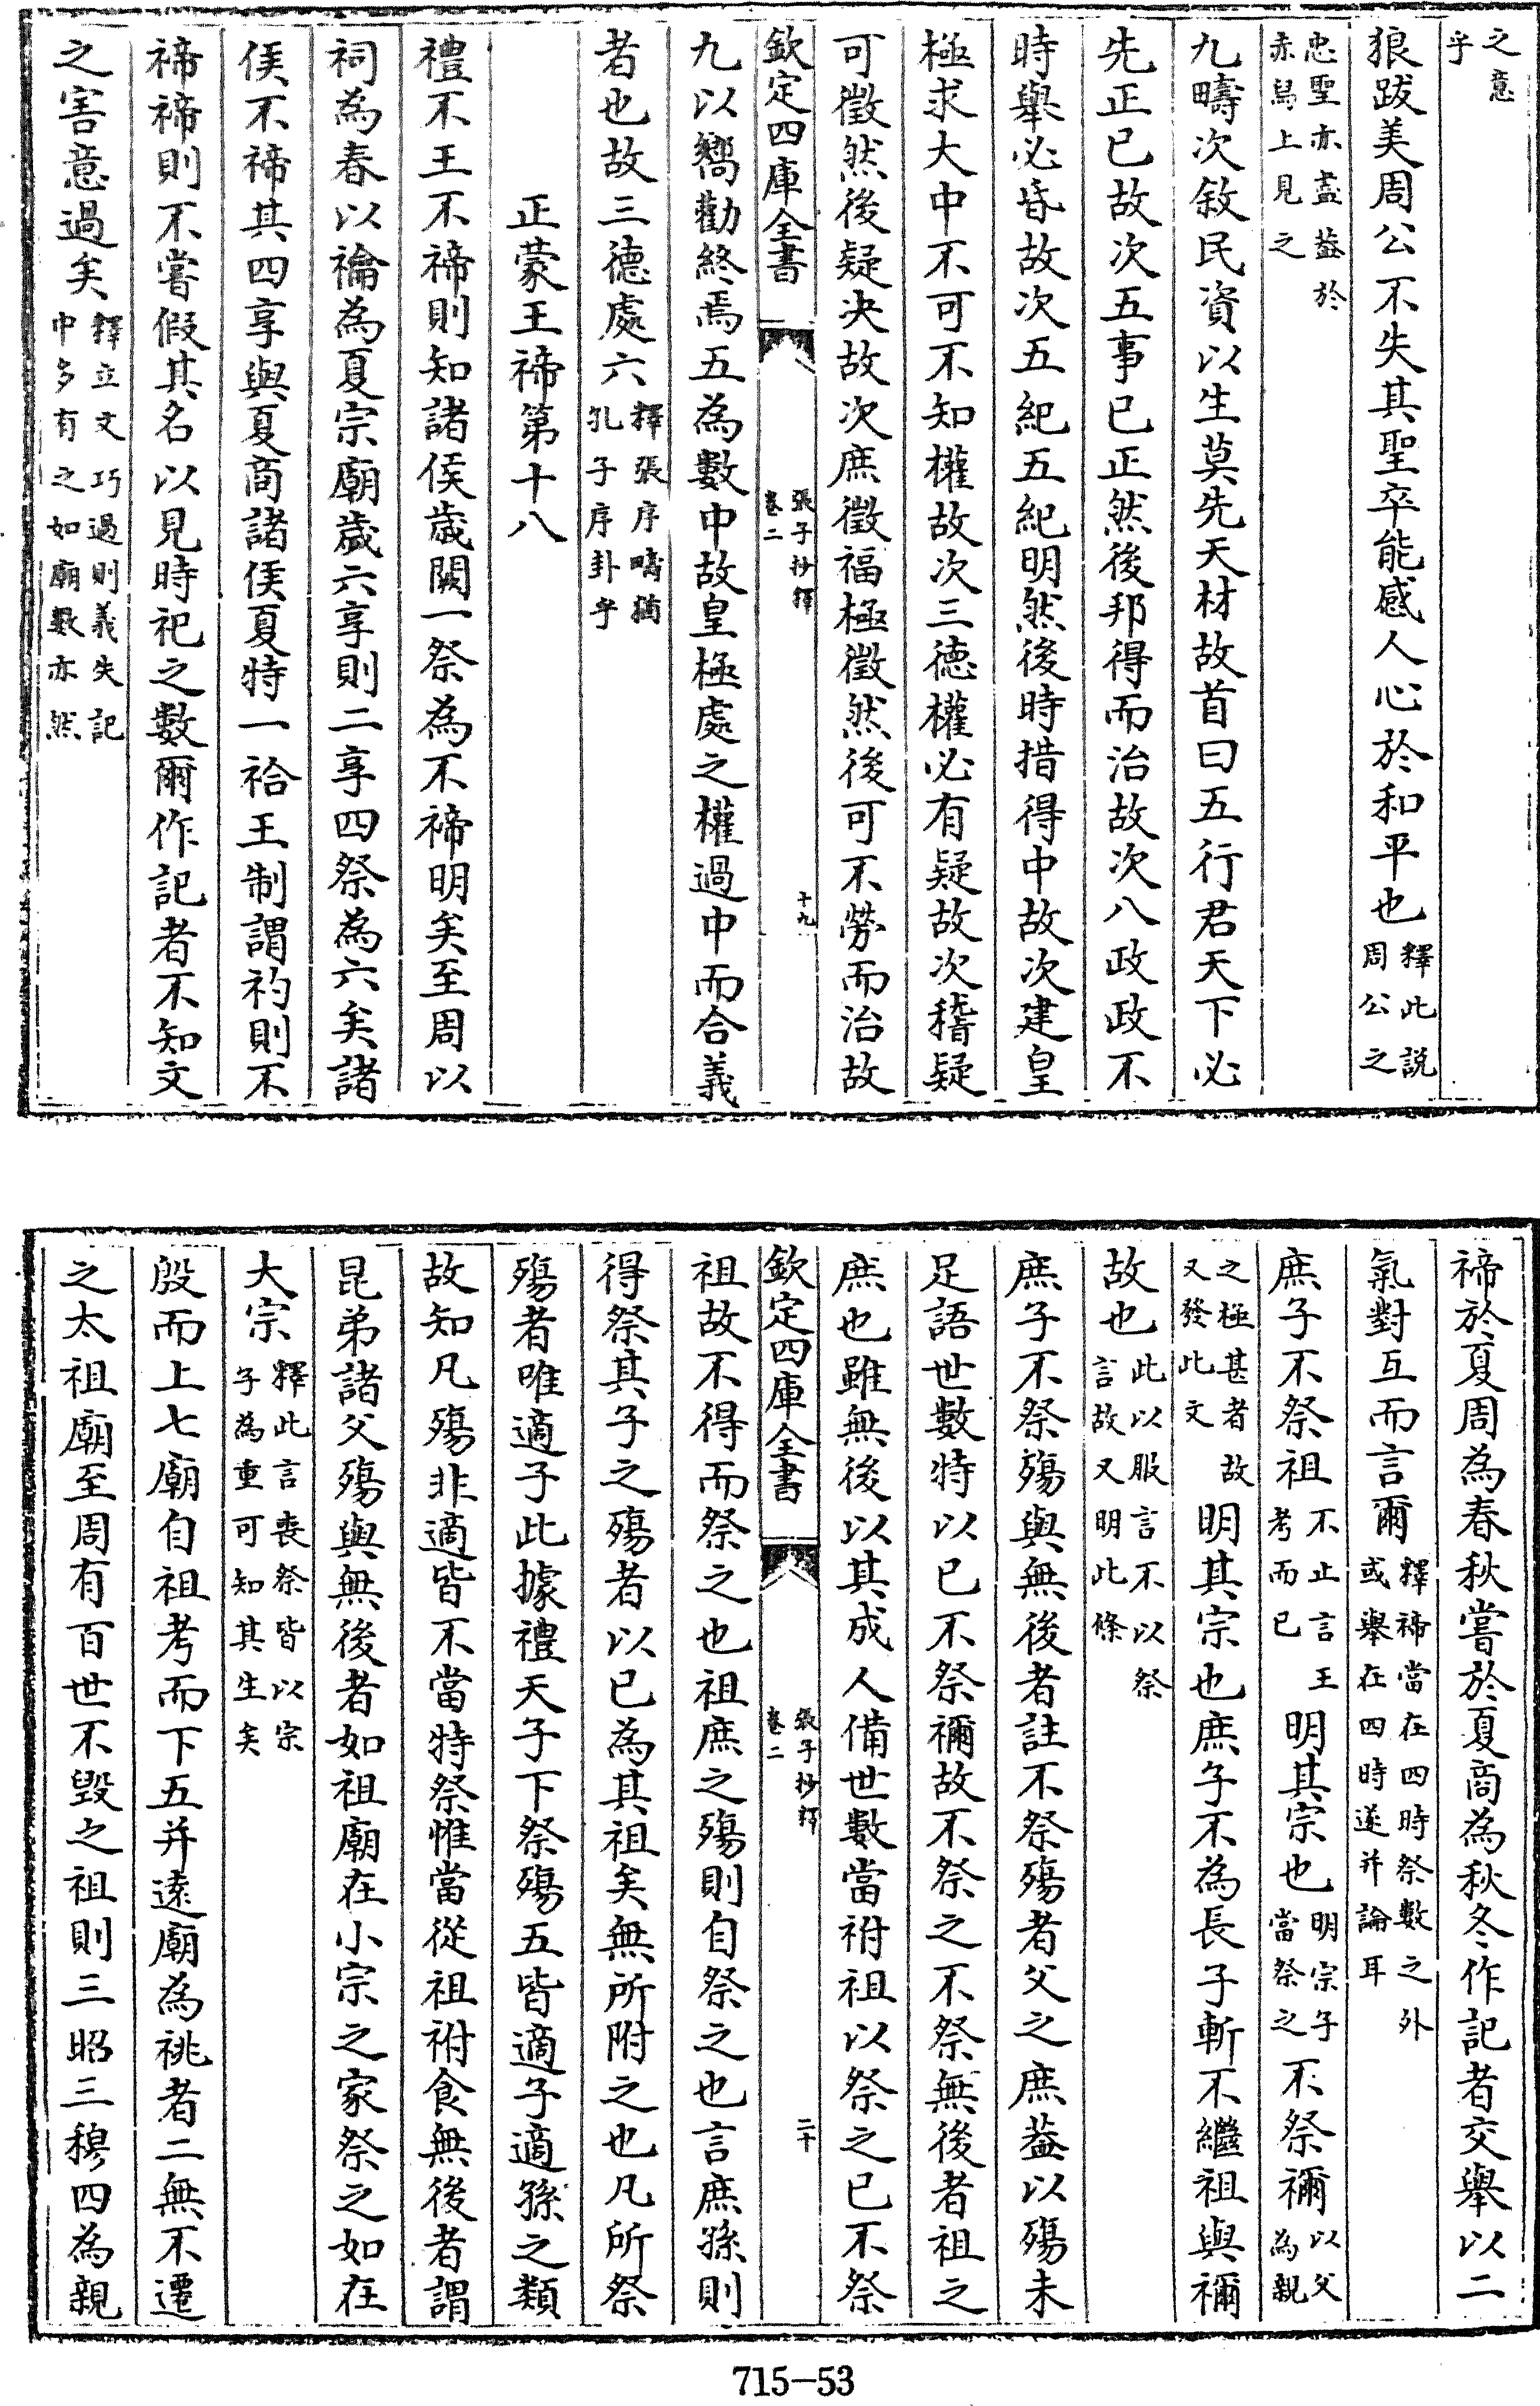 之意
乎
狼跋美周公不失其聖卒能感人心於和平也釋此說周公之
忠聖亦盡葢於
赤舄上見之
九疇次敘民資以生莫先天材故首曰五行君天下必
先正已故次五事已正然後邦得而治故次八政政不
時舉必昏故次五紀五紀明然後時措得中故次建皇
極求大中不可不知權故次三德權必有疑故次稽疑
可徵然後疑决故次庶徵福極徵然後可不勞而治故
欽定四庫全書
張子抄釋
卷二
十九
九以嚮勸終焉五為數中故皇極處之權過中而合義
者也故三德處六釋張序疇猶孔子序卦乎
正蒙王禘第十八
禮不王不禘則知諸侯歲闕一祭為不禘明矣至周以
祠為春以禴為夏宗廟歲六享則二享四祭為六矣諸
侯不禘其四享與夏商諸侯夏特一祫王制謂礿則不
禘禘則不嘗假其名以見時祀之數爾作記者不知文
之害意過矣釋立文巧過則義失記中多有之如廟數亦然
禘於夏周為春秋嘗於夏商為秋冬作記者交舉以二
氣對互而言爾釋禘當在四時祭數之外或舉在四時遂并論耳
庶子不祭祖不止言王考而已明其宗也明宗子當祭之不祭禰以父為親
之極甚者故又發此文明其宗也庶子不為長子斬不繼祖與禰
故也此以服言不以祭言故又明此條
庶子不祭殤與無後者註不祭殤者父之庶葢以殤未
足語世數特以已不祭禰故不祭之不祭無後者祖之
庶也雖無後以其成人備世數當祔祖以祭之已不祭
欽定四庫全書
張子抄釋
卷二
二十
祖故不得而祭之也祖庶之殤則自祭之也言庶孫則
得祭其子之殤者以已為其祖矣無所附之也凡所祭
殤者唯適子此據禮天子下祭殤五皆適子適孫之類
故知凡殤非適皆不當特祭惟當從祖祔食無後者謂
昆弟諸父殤與無後者如祖廟在小宗之家祭之如在
大宗釋此言喪祭皆以宗子為重可知其生矣
殷而上七廟自祖考而下五并遠廟為祧者二無不遷
之太祖廟至周有百世不毀之祖則三昭三穆四為親
715-53